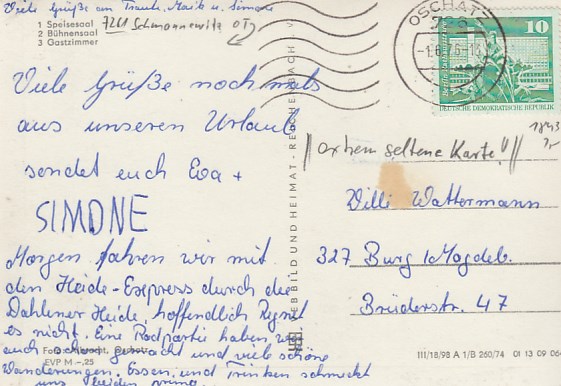 Viele Grüße an Traudi, Maik u. Simone
1 Speisesaal 7261 Schmannewitz OT
2 Bühnensaal
3 Gastzimmer
Viele Grüße nochmals
aus unseren Urlaub
sendet euch Eva +
SIMONE
Morgen fahren wir mit
den Heide-Express durch die
Dahlener Heide, hoffendlich Regnet
es nicht. Eine Radpartie haben wir
auch schon gemacht und viele schöne
Wanderungen. Essen und Trinken schmeckt
uns beiden prima
Foto:
EVP M -,25
VEB BILD UND HEIMAT · REICHENBACH V
OSCHATZ
726
-1.6.76-13
10
DEUTSCHE DEMOKRATISCHE REPUBLIK
1843
//extrem seltene Karte!//
Willi Wattermann
327 Burg /Magdeb.
Brüderstr. 47
III/18/98 A 1/B 260/74 01 13 09 064